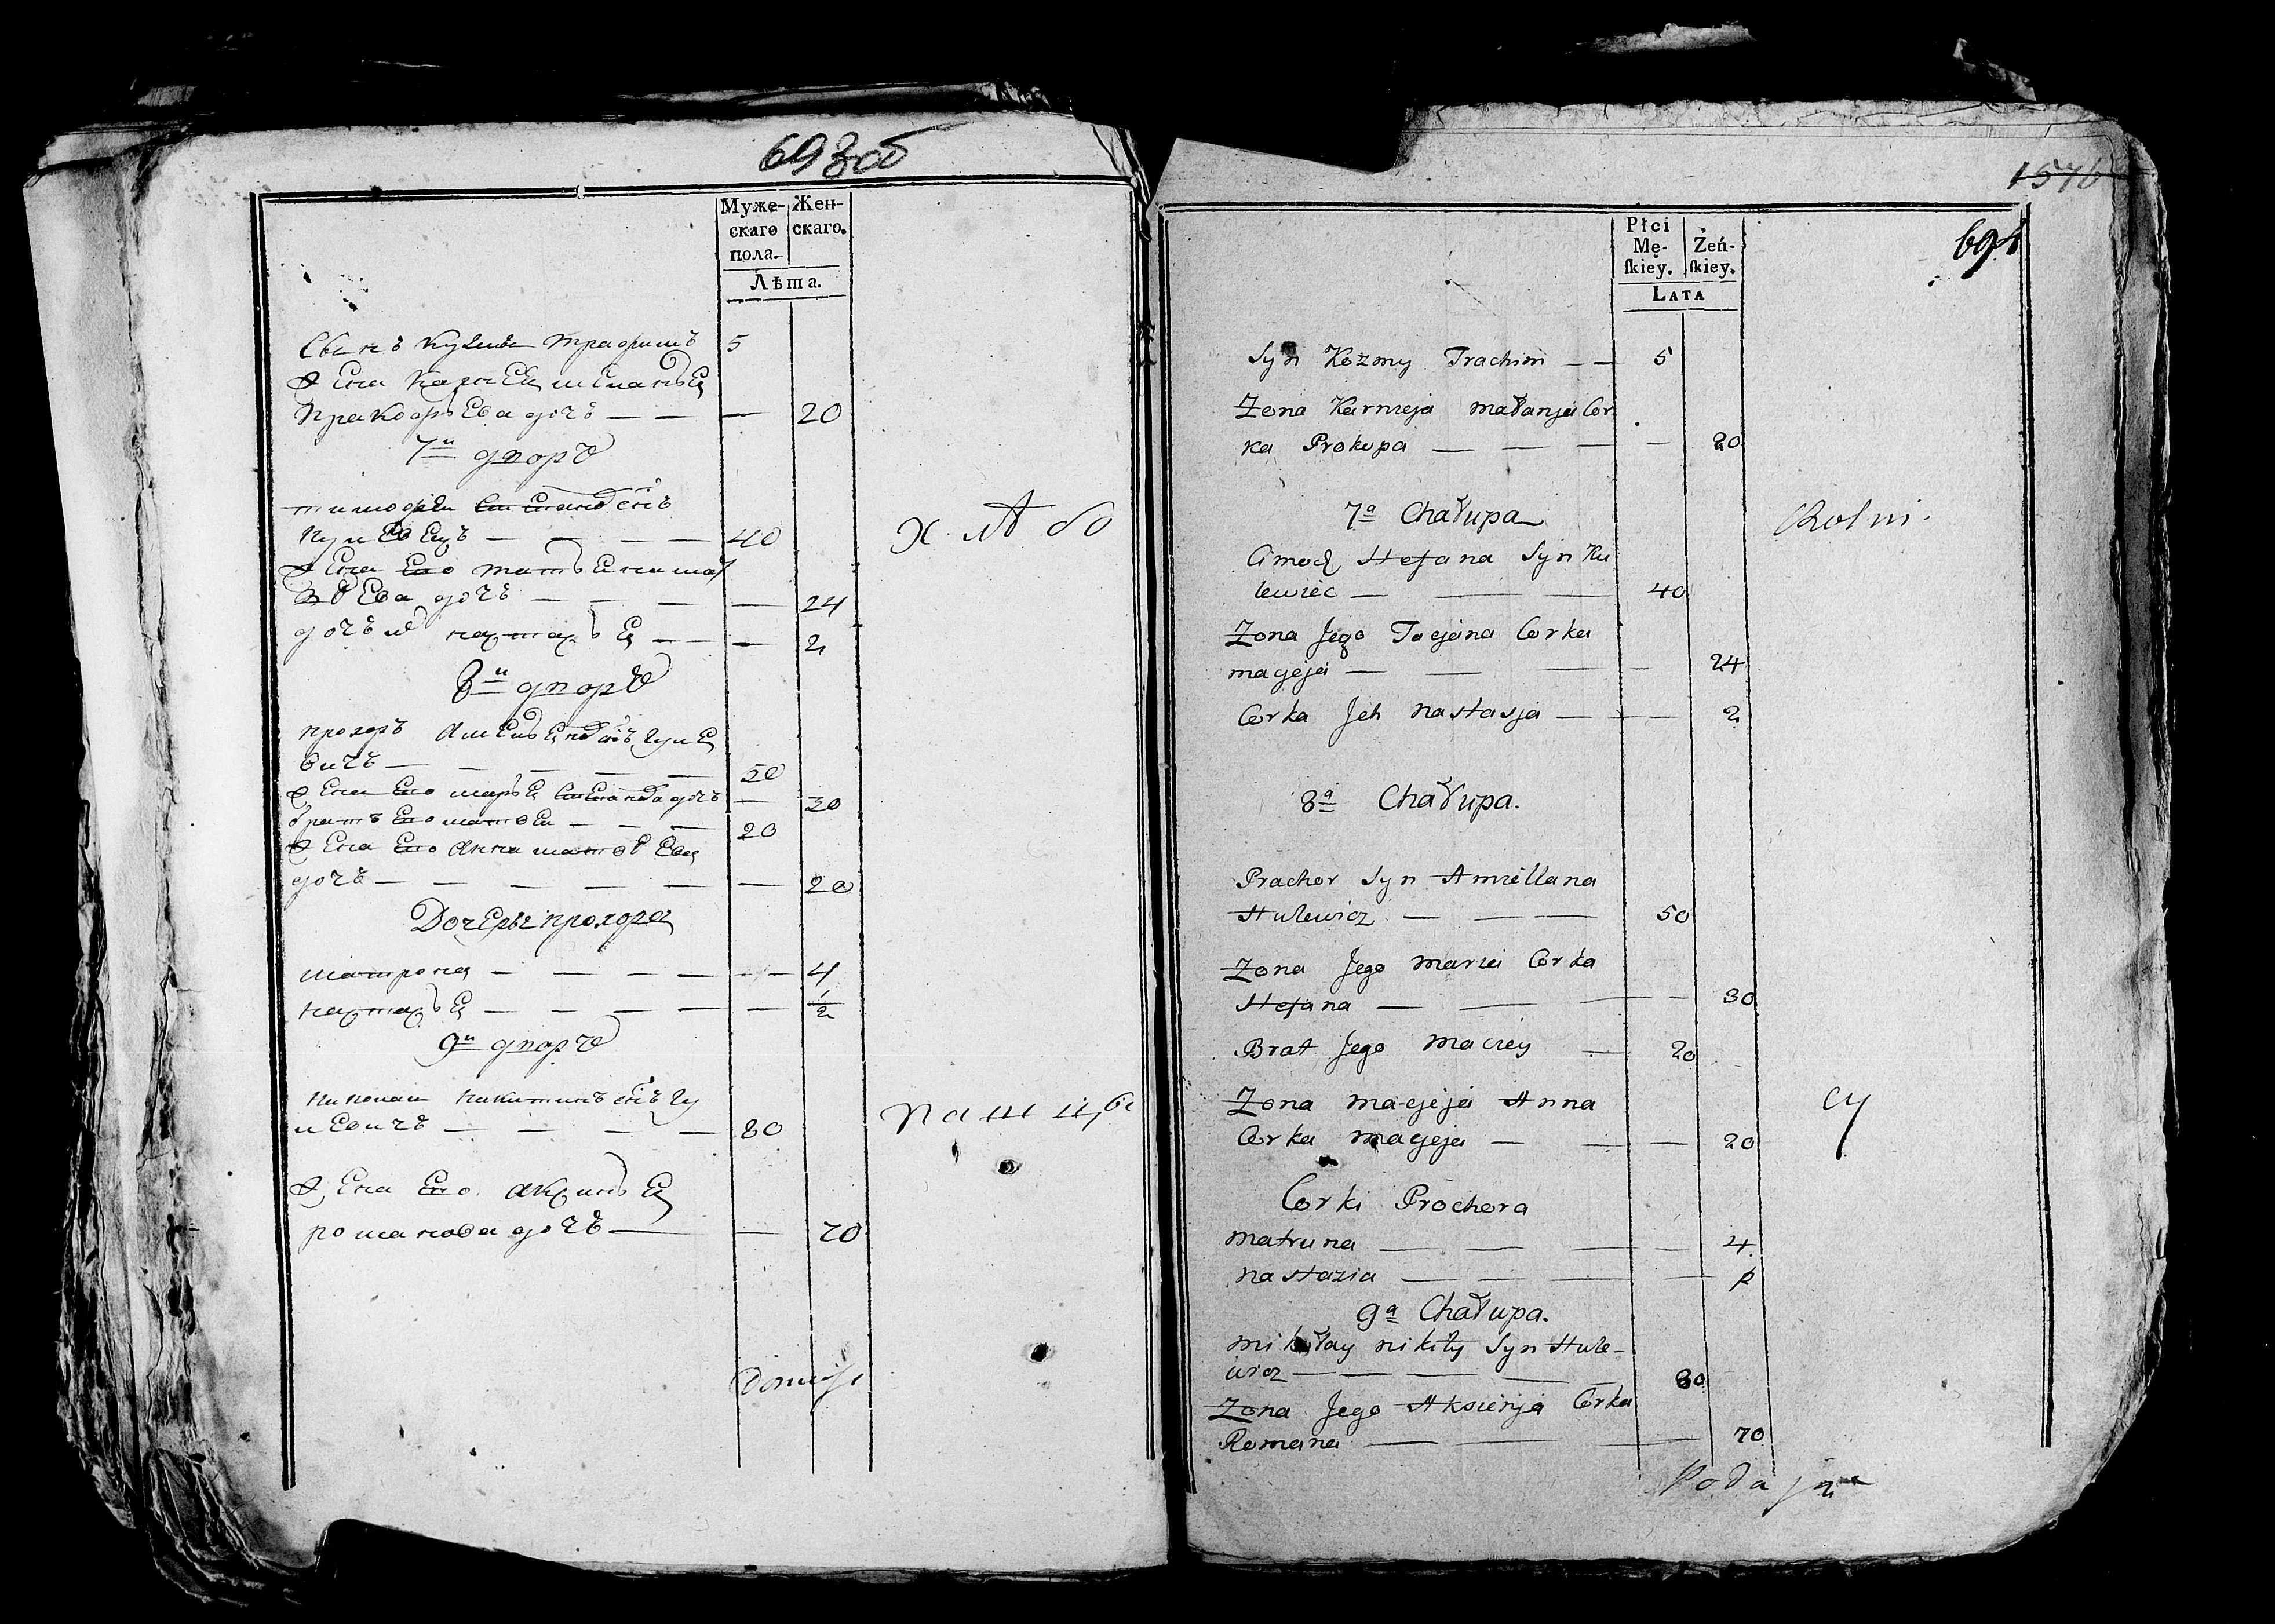 693об
Муже-
скаго
пола.
Жен-
скаго.
Лѣта.
Сынъ Кузьмы Трафимъ 5
Жена Карнея меланья
Пракофьева дочь — — — 20
7й дворъ
тимофей Степановъ снъ
Кулевецъ — — — — 40
Жена Его татьена мат
веева дочь — — — — 24
дочь настасья — — — 2
8й дворъ
прохоръ Амельеновъ снъ гуле
вичъ — — — — — 50
Жена Его марья Степанова дочь — 30
братъ Его матвеи — — — 20
Жена Его Анна матвеева
дочь — — — — — — 20
Дочеры прохора
матрона — — — — — 4
настасья — — — — — 1/2
9й дворъ
николаи никитинъ снъ гу
левичъ — — — — 80
Жена Его аксинья
романова дочь — — 70
хлѣбо
пашцы
1576
694
Płci
Mę-
ſkiey.
Żeń-
ſkiey.
LATA
Syn Kozmy Trachim — — 5
Zona Karnieja małanja Cor
ka Prokopa — — — — 20
7a Chałupa
Cimoch Stefana Syn Ku
lewiec — — — 40
Zona Jego Tacjana Corka
macjeja — — — — 24
Corka Jch nastasja — — — 2
8a Chałupa.
Prachor Syn Amiellana
Hulewicz — — — 50
Zona Jego maria Corka
Stefana — — — — 30
Brat Jego maciey — 20
Zona macjeja Anna
Corka macjeja — — — 20
Corki Prochora
matruna — — — — 4
nastazia — — — —
9a Chałupa.
mikołay nikity Syn Hule-
wicz — — — — — 80
Zona Jego Aksienja Corka
Romana — — — — 70
Rolni.
cy
Podają